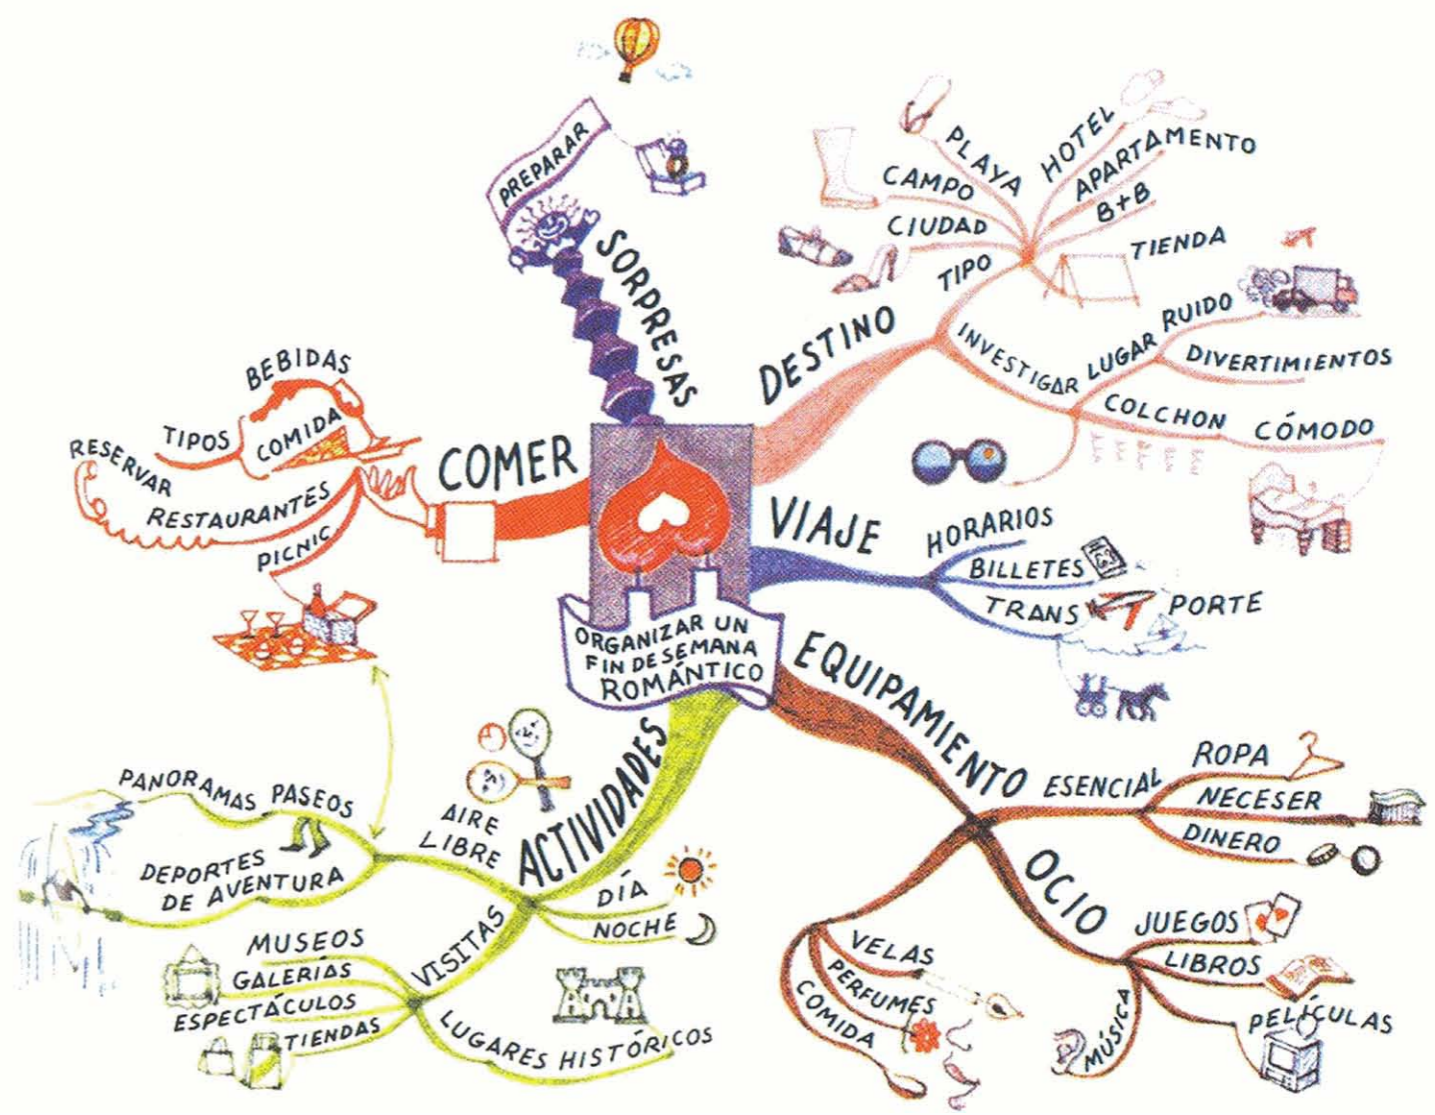 ORGANIZAR UN
FIN DE SEMANA
ROMÁNTICO
SORPRESAS
PREPARAR
DESTINO
TIPO
CIUDAD
CAMPO
PLAYA
HOTEL
APARTAMENTO
B+B
TIENDA
INVESTIGAR
LUGAR
RUIDO
DIVERTIMIENTOS
COLCHON
CÓMODO
VIAJE
HORARIOS
BILLETES
TRANS PORTE
EQUIPAMIENTO
ESENCIAL
ROPA
NECESER
DINERO
OCIO
JUEGOS
LIBROS
PELÍCULAS
MÚSICA
VELAS
PERFUMES
COMIDA
ACTIVIDADES
DÍA
NOCHE
AIRE
LIBRE
PASEOS
PANORAMAS
DEPORTES
DE AVENTURA
VISITAS
MUSEOS
GALERÍAS
ESPECTÁCULOS
TIENDAS
LUGARES HISTÓRICOS
COMER
BEBIDAS
TIPOS
COMIDA
RESERVAR
RESTAURANTES
PICNIC